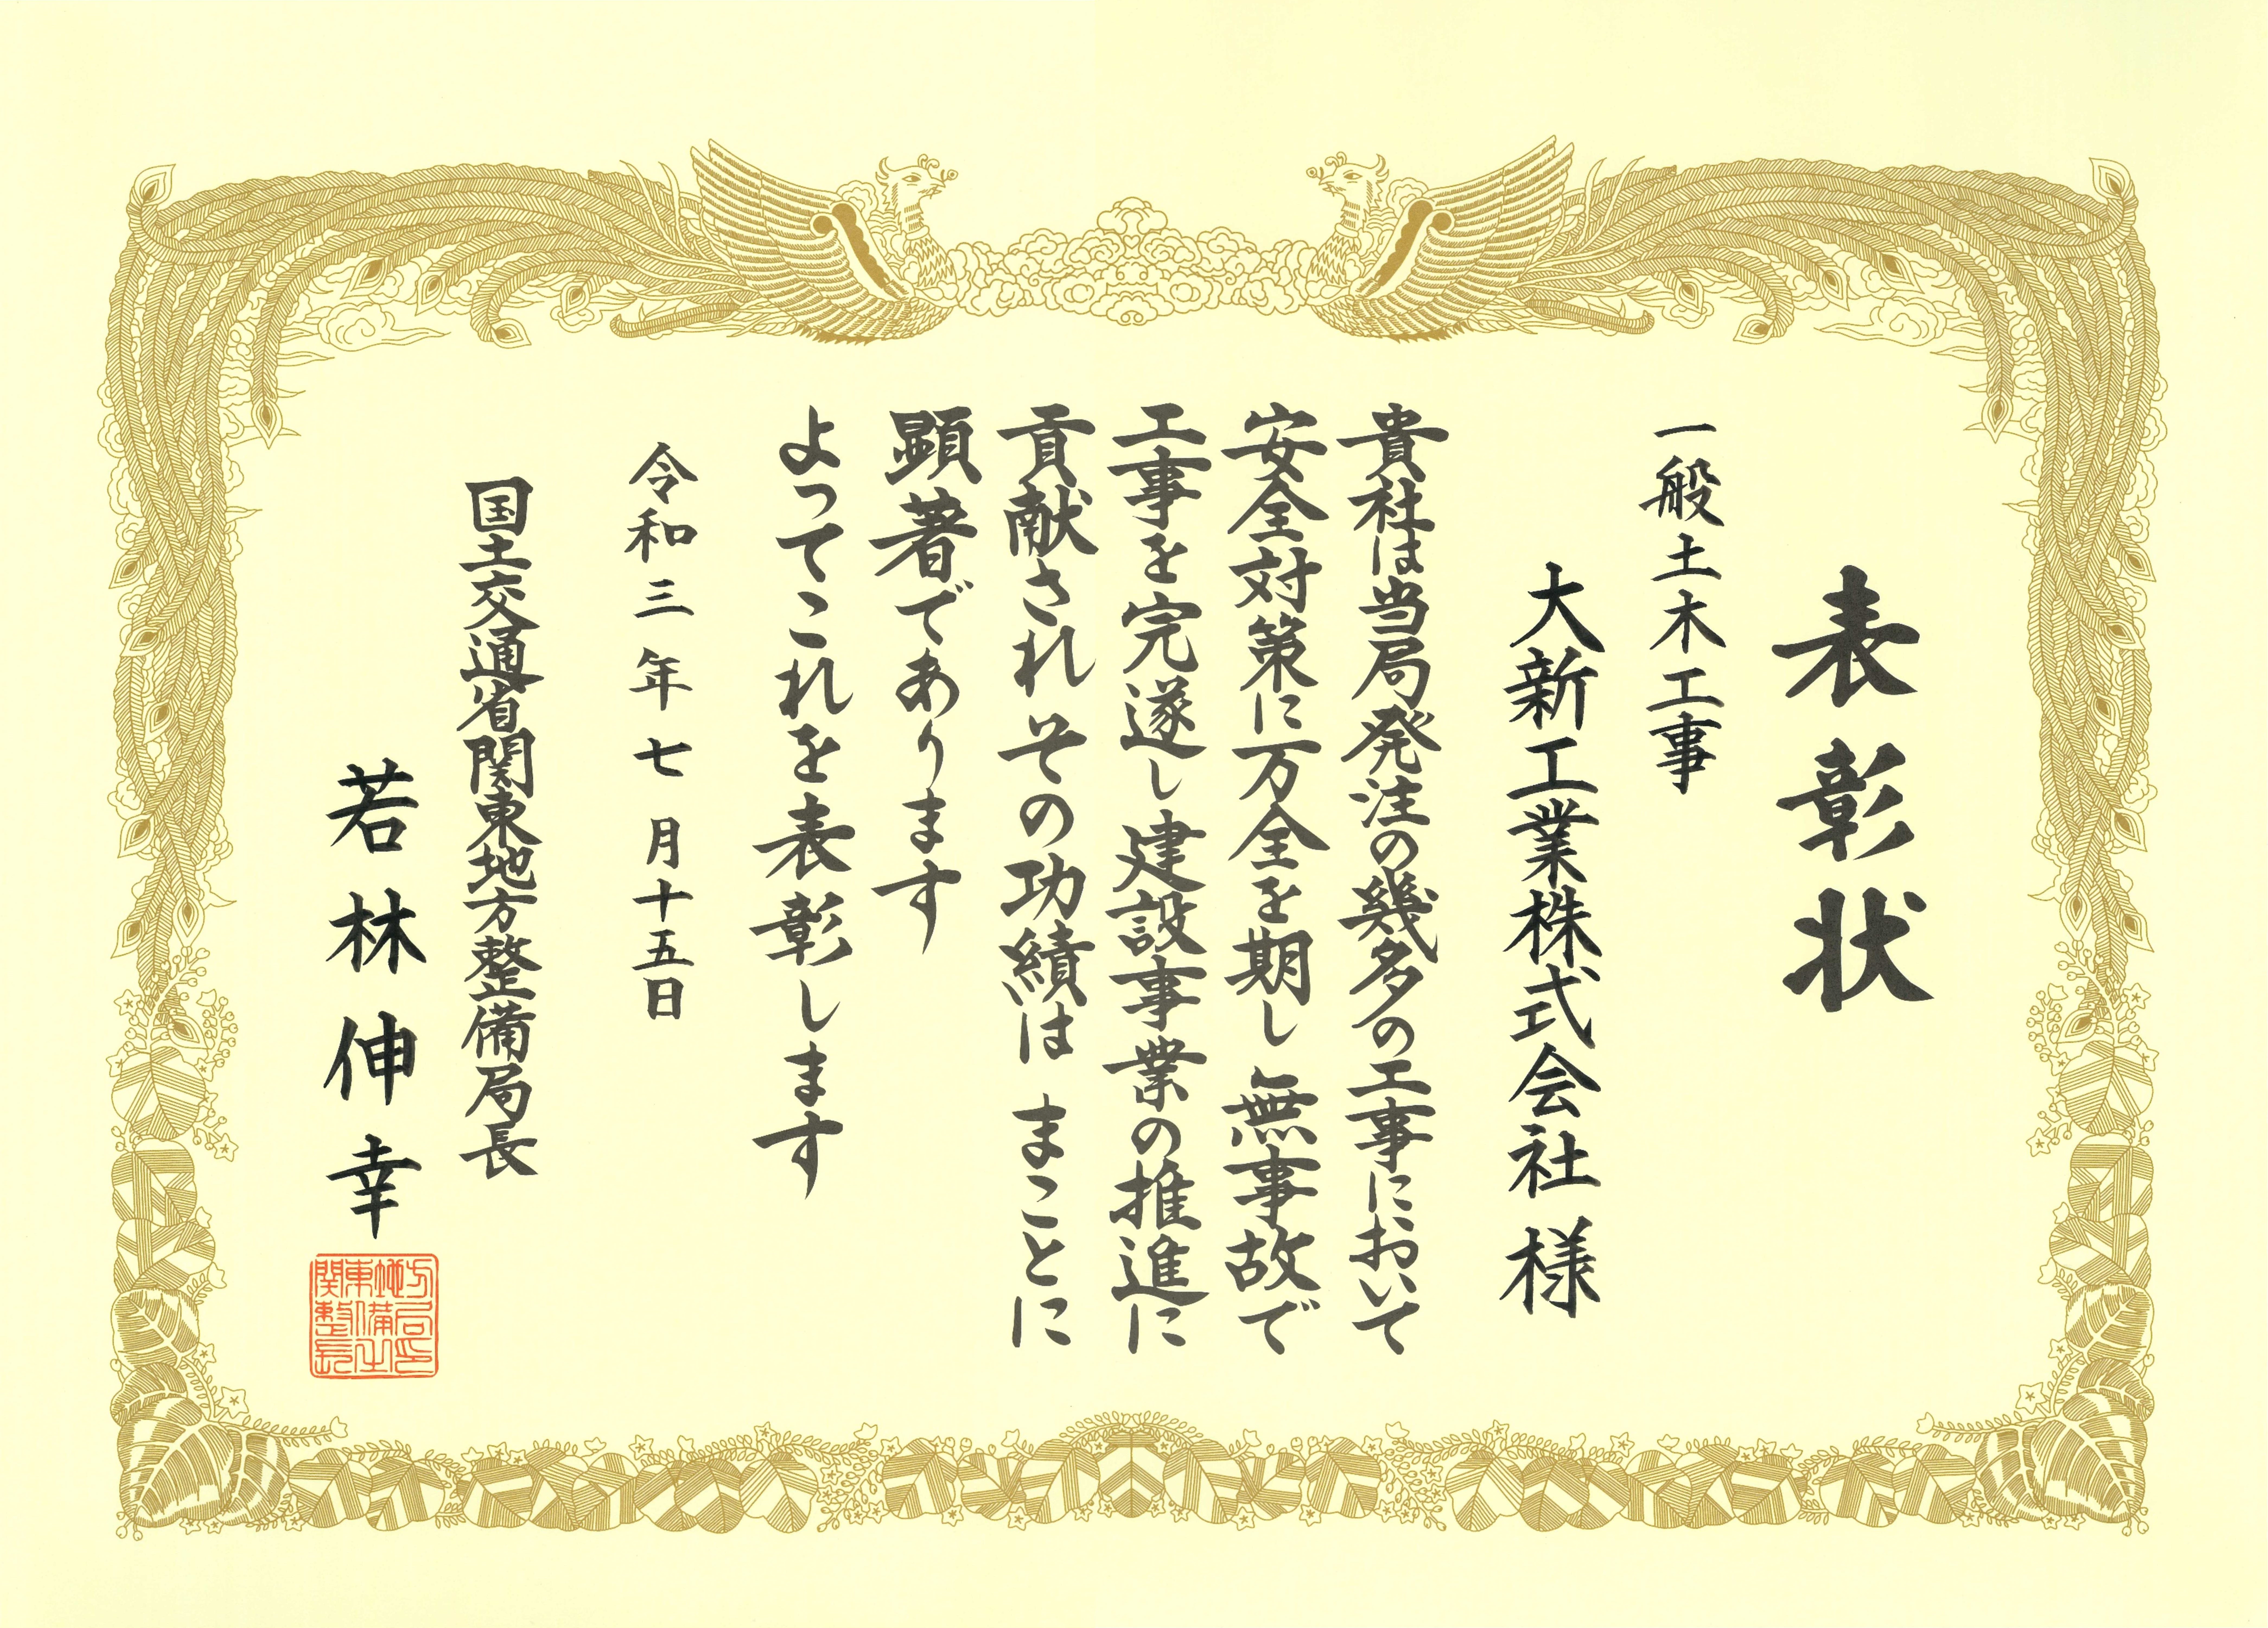 表彰状
一般土木工事
大新工業株式会社 様
貴社は当局発注の幾多の工事において
安全対策に万全を期し 無事故で
工事を完遂し 建設事業の推進に
貢献され その功績は まことに
顕著であります
よってこれを表彰します
令和三年七月十五日
国土交通省関東地方整備局長
若林伸幸